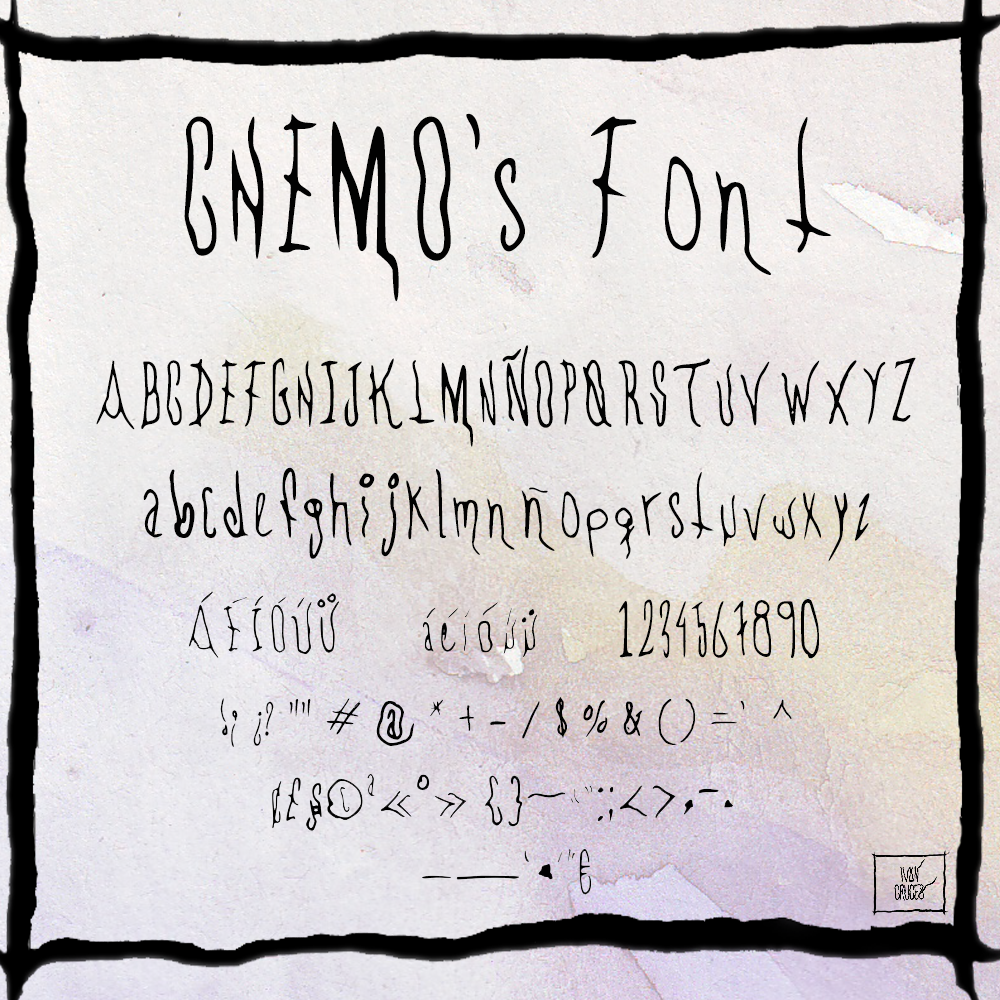 CHEMO's Font
ABCDEFGHIJKLMNÑOPQRSTUVWXYZ
abcdefghijklmnñopqrstuvwxyz
ÁÉÍÓÚÜ áéíóúü 1234567890
!¡ ¿? "" # @ * + - / $ % & ( ) = ` ^
¢£§©ª«º» { } ~ ¨ : ; < > , - .
– — ‘ • ’ ” €
IVAN
CRUCES